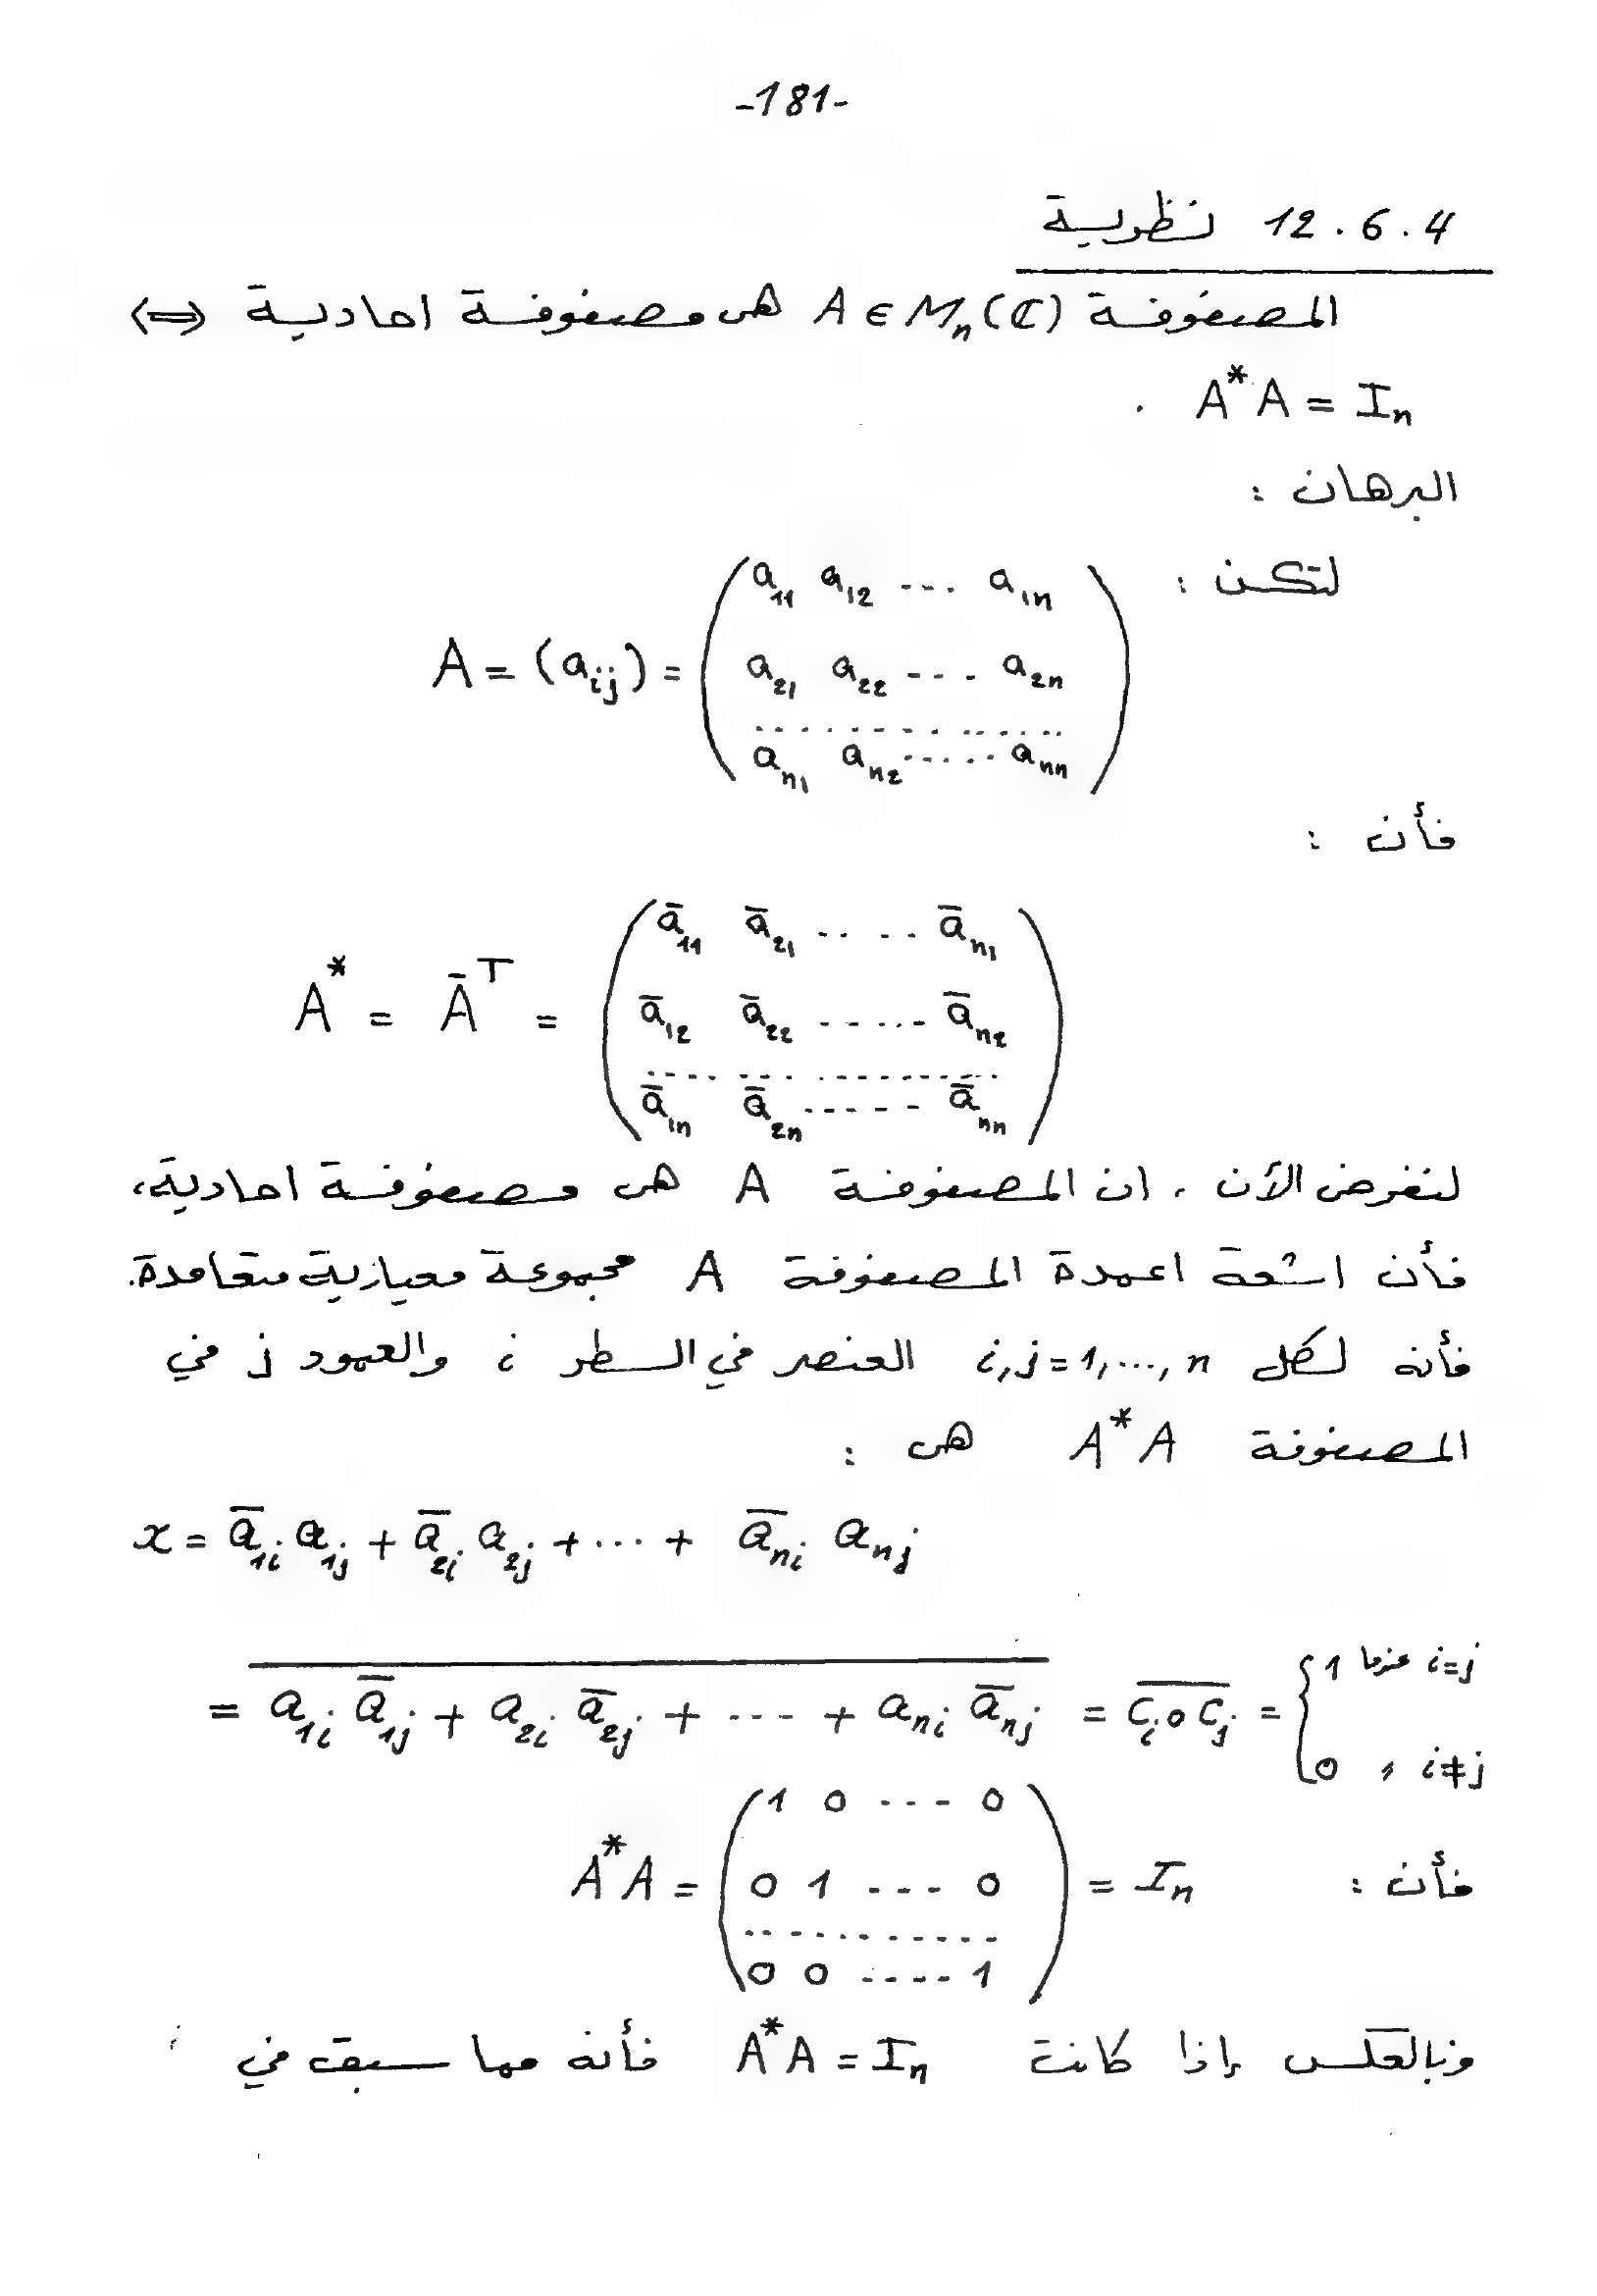 -181-
12.6.4 نظرية
المصفوفة A ∈ M_n(ℂ) هى مصفوفة احادية ⟺
A*A = I_n .
البرهان :
لتكن :
a_11 a_12 --- a_1n
A = (a_ij) = a_21 a_22 --- a_2n
..............
a_n1 a_n2 ..... a_nn
فأن :
ā_11 ā_21 .... ā_n1
A* = Ā^T = ā_12 ā_22 ..... ā_n2
..............
ā_1n ā_2n ----- ā_nn
لنفرض الآن ، ان المصفوفة A هى مصفوفة احادية،
فأن اشعة اعمدة المصفوفة A مجموعة معيارية متعامدة.
فأنه لكل i,j=1,...,n العنصر في السطر i والعمود j في
المصفوفة A*A هى :
x = ā_1i a_1j + ā_2i a_2j + ... + ā_ni a_nj
= \overline{a_1i ā_1j + a_2i ā_2j + --- + a_ni ā_nj} = \overline{C_i o C_j} = { 1 عندما i=j
0 , i≠j
1 0 --- 0
فأن : A*A = 0 1 --- 0 = I_n
..............
0 0 ---- 1
وبالعكس إذا كانت A*A = I_n فأنه مما سبق في